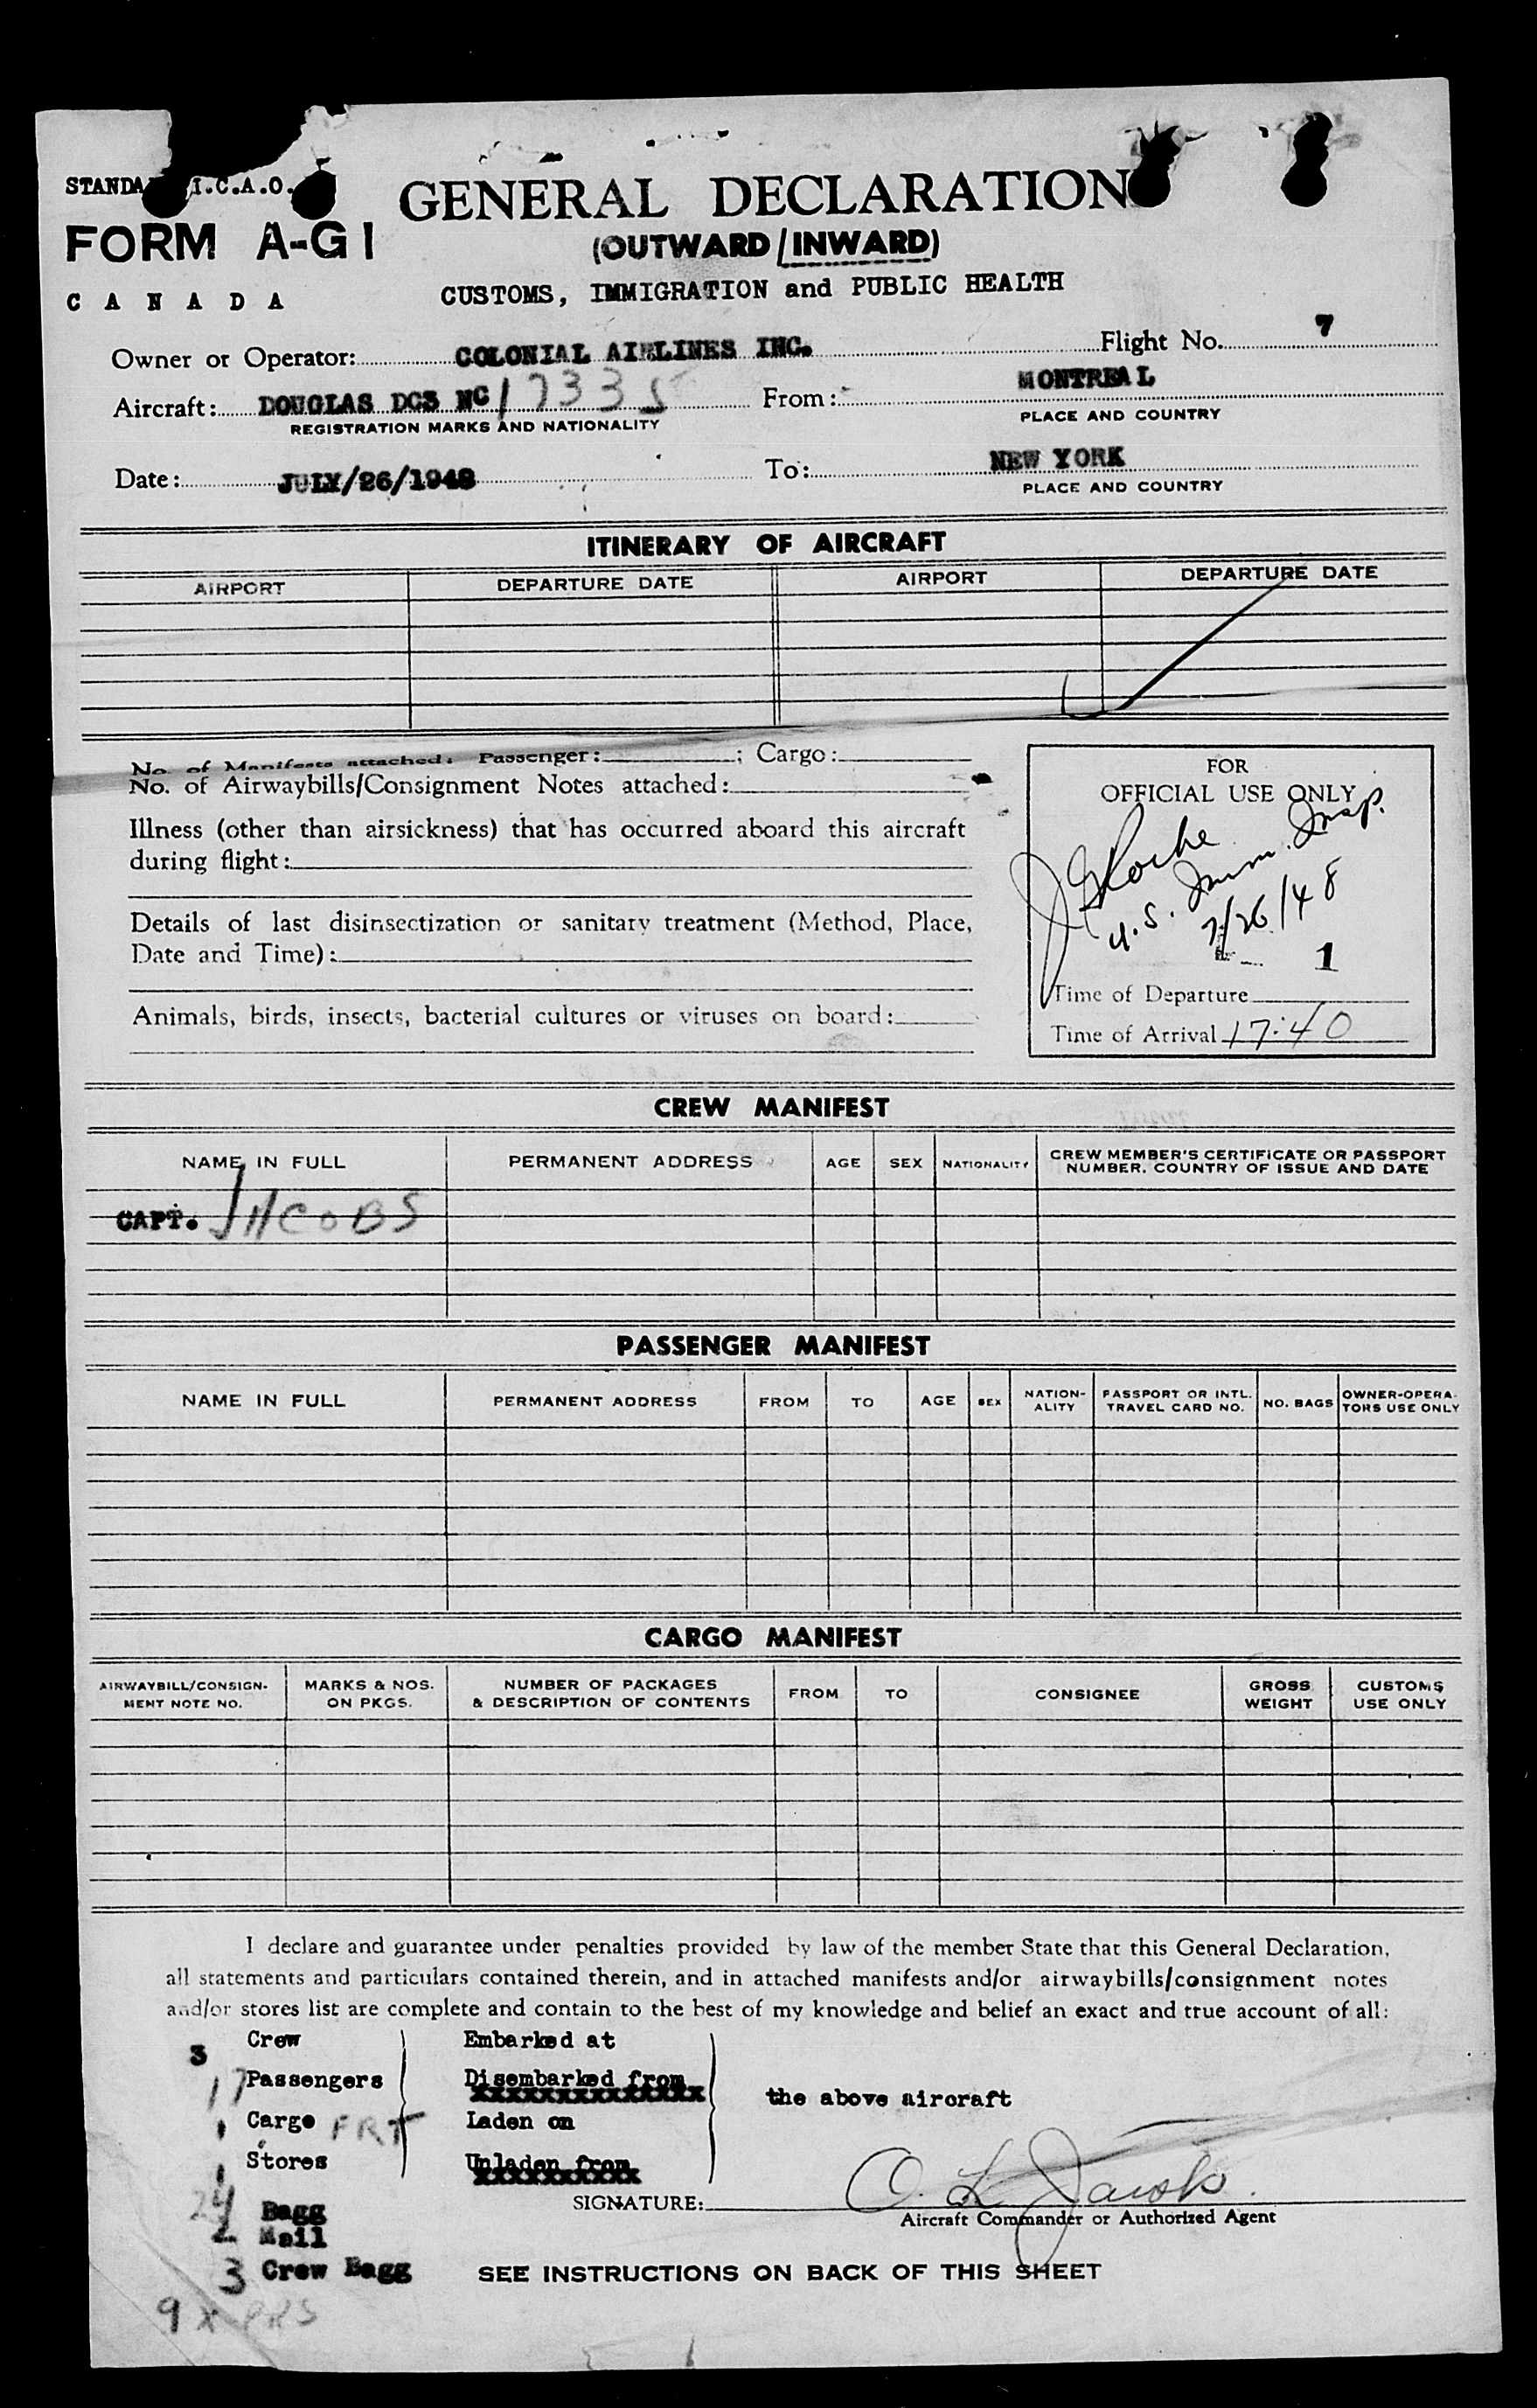 STANDA I.C.A.O.
GENERAL DECLARATION
FORM A-G1
(OUTWARD/INWARD)
CANADA
CUSTOMS, IMMIGRATION and PUBLIC HEALTH
Owner or Operator: COLONIAL AIRLINES INC. Flight No. 7
Aircraft: DOUGLAS DC3 NC 17335 From: MONTREAL
REGISTRATION MARKS AND NATIONALITY PLACE AND COUNTRY
Date: JULY/26/1948 To: NEW YORK
PLACE AND COUNTRY
ITINERARY OF AIRCRAFT
AIRPORT DEPARTURE DATE AIRPORT DEPARTURE DATE
No. of Manifests attached: Passenger: ; Cargo:
No. of Airwaybills/Consignment Notes attached:
Illness (other than airsickness) that has occurred aboard this aircraft
during flight:
Details of last disinsectization or sanitary treatment (Method, Place,
Date and Time):
Animals, birds, insects, bacterial cultures or viruses on board:
FOR
OFFICIAL USE ONLY
J G Roche
U.S. Imm. Insp.
7/26/48
1
Time of Departure
Time of Arrival 17:40
CREW MANIFEST
NAME IN FULL PERMANENT ADDRESS AGE SEX NATIONALITY CREW MEMBER'S CERTIFICATE OR PASSPORT
NUMBER, COUNTRY OF ISSUE AND DATE
CAPT. JACOBS
PASSENGER MANIFEST
NAME IN FULL PERMANENT ADDRESS FROM TO AGE SEX NATION-
ALITY PASSPORT OR INTL.
TRAVEL CARD NO. NO. BAGS OWNER-OPERA-
TORS USE ONLY
CARGO MANIFEST
AIRWAYBILL/CONSIGN-
MENT NOTE NO. MARKS & NOS.
ON PKGS. NUMBER OF PACKAGES
& DESCRIPTION OF CONTENTS FROM TO CONSIGNEE GROSS
WEIGHT CUSTOMS
USE ONLY
I declare and guarantee under penalties provided by law of the member State that this General Declaration,
all statements and particulars contained therein, and in attached manifests and/or airwaybills/consignment notes
and/or stores list are complete and contain to the best of my knowledge and belief an exact and true account of all:
3 Crew Embarked at
17 Passengers Disembarked from
the above aircraft
1 Cargo FRT Laden on
1 Stores Unladen from
24 Bagg
SIGNATURE: O. L. Jacobs
Aircraft Commander or Authorized Agent
2 Mail
3 Crew Bagg
SEE INSTRUCTIONS ON BACK OF THIS SHEET
9 X-PRS